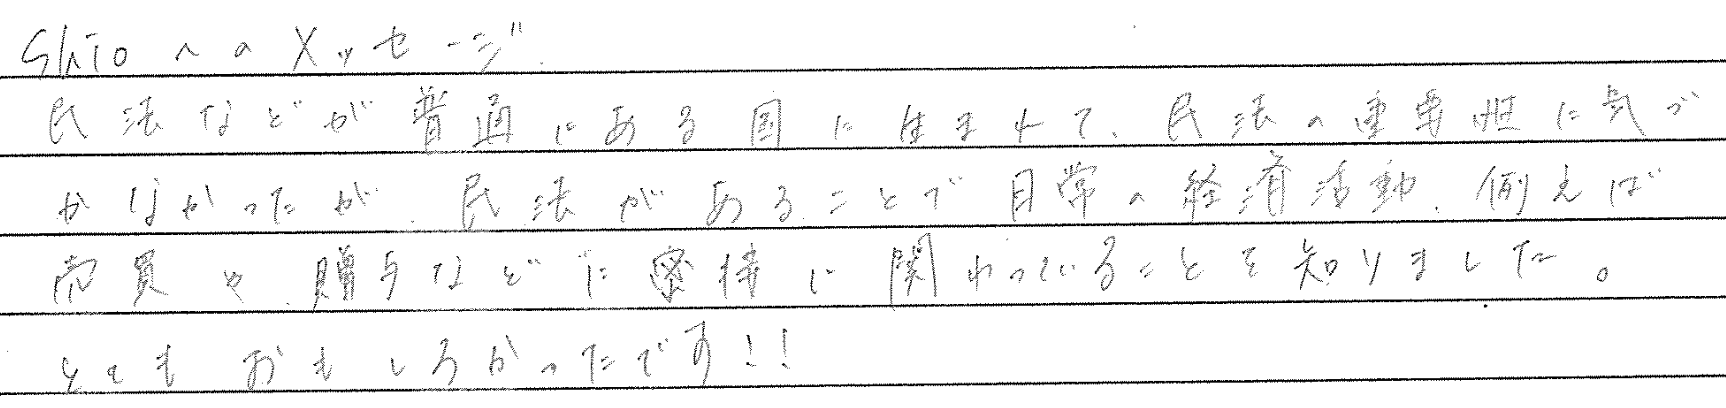 Shioへのメッセージ
民法などが普通にある国に生まれて、民法の重要性に気づ
かなかったが、民法があることで日常の経済活動、例えば
売買や、贈与などに密接に関わっていることを知りました。
とてもおもしろかったです!!